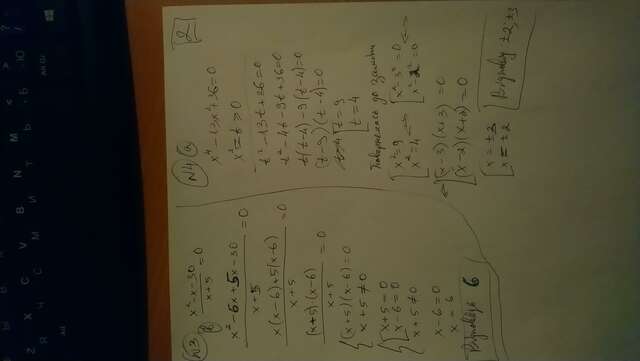 2
№3
б)
x²-x-30/x+5=0
x²-6x+5x-30/x+5=0
x(x-6)+5(x-6)/x+5=0
(x+5)·(x-6)/x+5=0
{(x+5)(x-6)=0
x+5≠0
{[x+5=0
x-6=0
x+5≠0
x-6=0
x=6
Відповідь 6
№4 а)
x⁴-13x²+36=0
x²=t≥0
t²-13t+36=0
t²-4t-9t+36=0
t(t-4)-9(t-4)=0
(t-9)(t-4)=0
[t=9
t=4
Повертаємось до заміни
[x²=9
x²=4
<=>
[x²-3²=0
x²-2²=0
<=>
[(x-3)(x+3)=0
(x-2)(x+2)=0
[x=±3
x=±2
Відповідь ±2;±3